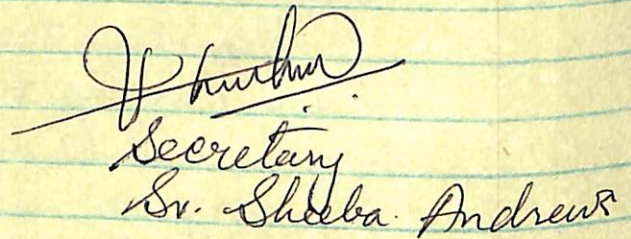 Secretary
Sr. Sheeba. Andrews